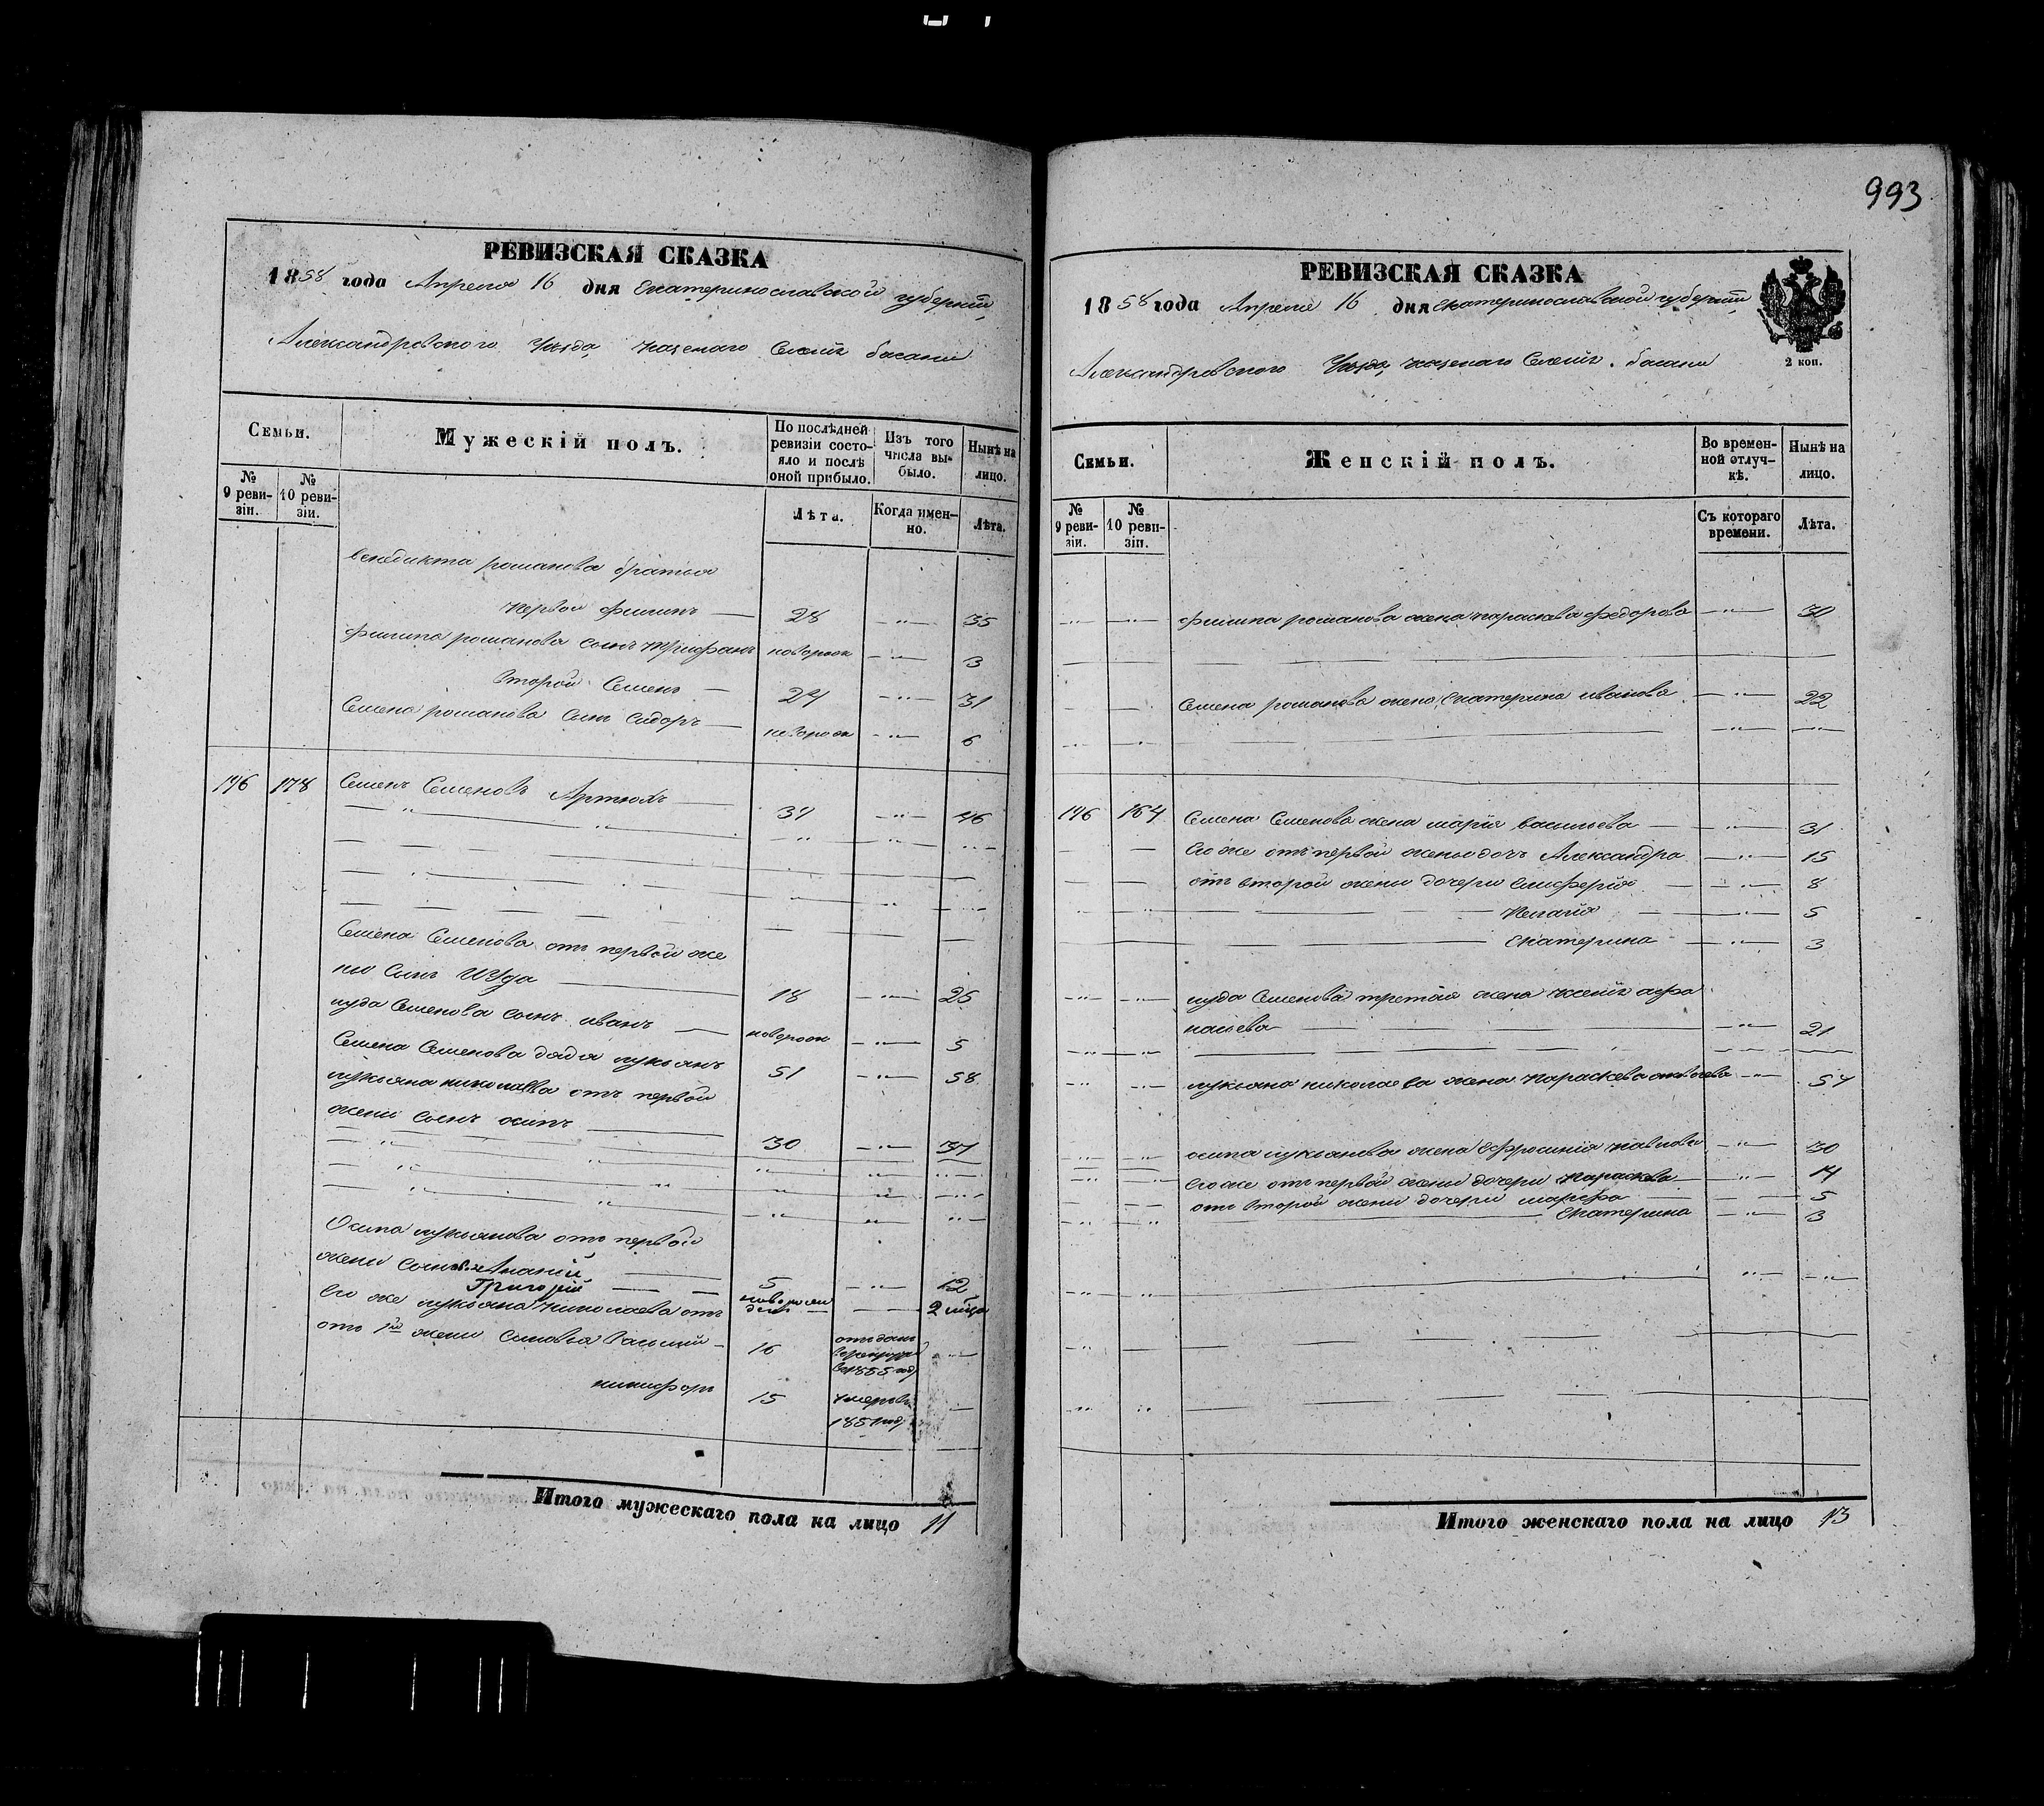 993
РЕВИЗСКАЯ СКАЗКА
1858 года Апреля 16 дня Екатеринославской губернии
Александровского Уезда, казенаго Селения басани
Семьи.
Мужескій полъ.
По послѣдней ревизіи состояло и послѣ оной прибыло.
Изъ того числа выбыло.
Нынѣ на лицо.
№ 9 ревизіи.
№ 10 ревизіи.
Лѣта.
Когда именно.
Лѣта.
венедикта романова братья
первой филипъ — 28 —"— 35
филипа романова сынъ трифанъ новорож —"— 3
второй Семенъ — 24 —"— 31
Семена романова сынъ сидоръ — новорож —"— 6
146 178 Семенъ Семеновъ Артюхъ — 39 —"— 46
Семена Семенова отъ первой же
ны сынъ Июда — 18 —"— 25
иуда Семенова сынъ иванъ — новорож —"— 5
Семена Семенова дядя лукьянъ 51 —"— 58
лукьяна николаева отъ первой
жены сынъ осипъ — 30 —"— 37
Осипа лукьянова отъ первой
жены Ананій — 5 —"— 12
Григорій — — 2
Его же лукьяна николаева отъ
отъ 1й жены Сыновья 16 отъданъ в рекруты в 1855 год
никифоръ 15 умеръ в 1851 год
Итого мужескаго пола на лицо 11
РЕВИЗСКАЯ СКАЗКА
1858 года Апреля 16 дня Екатеринославской губернии
Александровского Уезда, казенаго Селения басани
2 коп.
Семьи.
Женскій полъ.
Во временной отлучкѣ.
Нынѣ на лицо.
№ 9 ревизіи.
№ 10 ревизіи.
Съ котораго времени.
Лѣта.
филипа романова жена параскева федорова —"— 30
Семена романова жена Екатерина иванова —"— 22
146 164 Семена Семенова жена марія васильева — —"— 31
Его же отъ первой жены дочь Александра —"— 15
отъ второй жены дочери — —"— 8
Пелагія — —"— 5
Екатерина — —"— 3
иуда Семенова третяя жена афа
насьева —"— 21
лукьяна николаева жена параскева —"— 54
осипа лукьянова жена Ефросинія павлова —"— 30
Его же отъ первой жены дочери параскева —"— 14
отъ второй жены дочери марфа — 5
Екатерина —"— 3
Итого женскаго пола на лицо 13